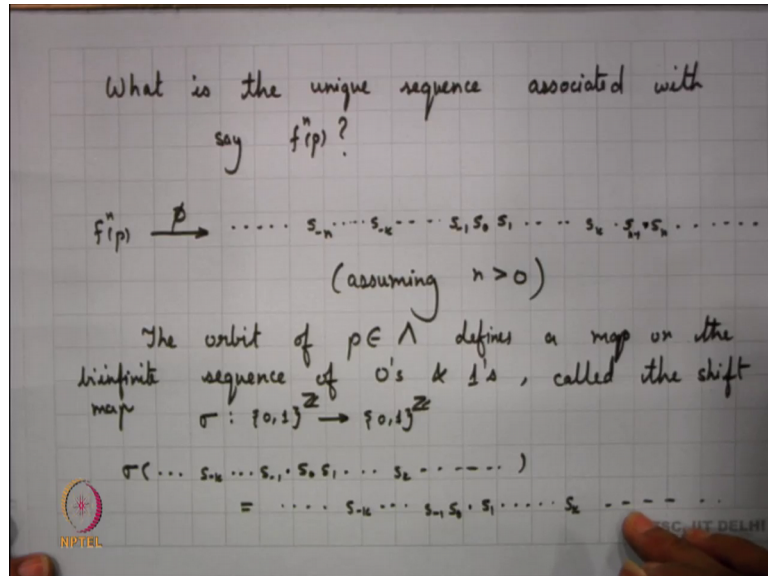 What is the unique sequence associated with
say fⁿ(p)?
fⁿ(p) —ϕ→ ..... s₋ₙ .... s₋ₖ .... s₋₁ s₀ s₁ ..... sₖ . sₙ₋₁ • sₙ .......
(assuming n > 0)
The orbit of p ∈ Λ defines a map on the
biinfinite sequence of 0's & 1's, called the shift
map σ : {0,1}^ℤ → {0,1}^ℤ
σ( ... s₋ₖ ... s₋₁ • s₀ s₁ ... sₖ ....... )
= .... s₋ₖ ... s₋₁ s₀ • s₁ ..... sₖ .......
NPTEL
IIT DELHI